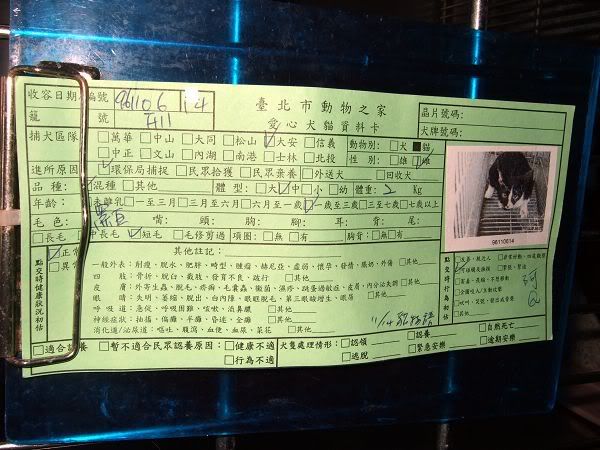 收容日期/編號 961106 14 臺北市動物之家 晶片號碼:
籠號 411 愛心犬貓資料卡 犬牌號碼:
捕犬區隊 □萬華□中山□大同□松山☑大安□信義 動物別: □犬■貓
□中正□文山□內湖□南港□士林□北投 性別: □雄☑雌
進所原因 ☑環保局捕捉□民眾拾獲□民眾棄養□外送犬□回收犬
品種: ☑混種□其他 體型: □大☑中□小□幼 體重: 2 Kg
年齡: □未離乳□一至三月□三月至六月□六月至一歲☑一歲至三歲□三至七歲□七歲以上
毛色: 黑白 嘴: 頭: 胸: 腳: 耳: 背: 尾:
□長毛□中長毛☑短毛□毛修剪過 項圈: □無□有 胸背: □無□有
點交時健康狀況初估 ☑正常 □異常
其他註記:
一般外表: 削瘦、脫水、肥胖、畸型、腫瘤、赫尼亞、虛弱、懷孕、發情、腸奶、外傷□其他
四肢: 骨折、脫臼、截肢、發育不良、跛行 □其他
皮膚: 外寄生蟲、脫毛、疥癬、毛囊蟲、黴菌、濕疹、跳蚤過敏症、皮膚、內分泌失調□其他
眼睛: 失明、萎縮、脫出、白內障、眼瞼脫毛、第三眼瞼增生、眼屎 □其他
呼吸道: 急促、呼吸困難、咳嗽、流鼻膿 □其他
神經症狀: 抽搐、偏癱、半癱、昏迷、全癱 □其他
消化道/泌尿道: 嘔吐、腹瀉、血便、血尿、菜花 □其他
96110614
點交時行為初估
□適合認養□暫不適合民眾認養原因: □健康不適 犬隻處理情形: □認領 □認養 □自然死亡
□行為不適 □逃脫 □緊急安樂 □逾期安樂